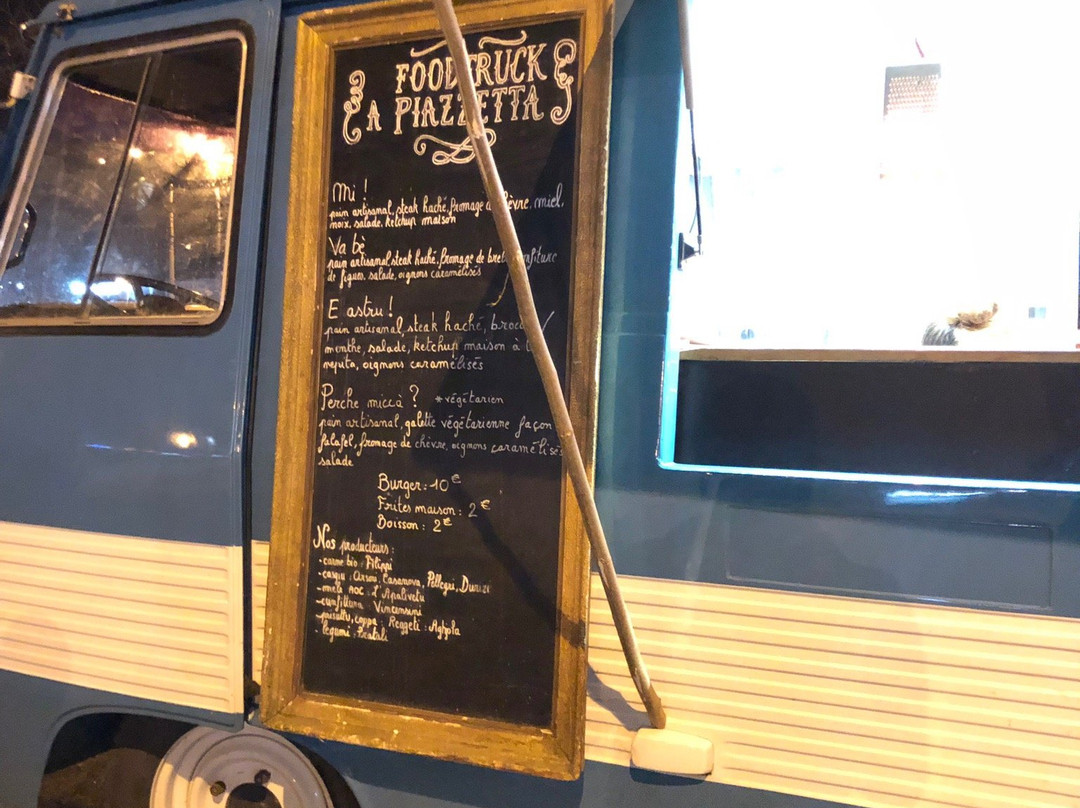 FOODTRUCK
A PIAZZETTA
Mi !
pain artisanal, steak haché, fromage de chèvre, miel,
noix, salade, ketchup maison
Va bè
pain artisanal, steak haché, fromage de brebis, confiture
de figues, salade, oignons caramélisés
E astru !
pain artisanal, steak haché,
menthe, salade, ketchup maison à la
nepita, oignons caramélisés
Perchè miccà ? *végétarien
pain artisanal, galette végétarienne façon
falafel, fromage de chèvre, oignons caramélisés
salade
Burger: 10€
Frites maison: 2€
Boisson: 2€
Nos producteurs:
- carne bio: Filippi
- casgiu: Orsoni, Casanova, Pellegri,
- meli AOC: L'Apalivetu
- cunfittura: Vincensini
- prisuttu, coppa:
- legumi: